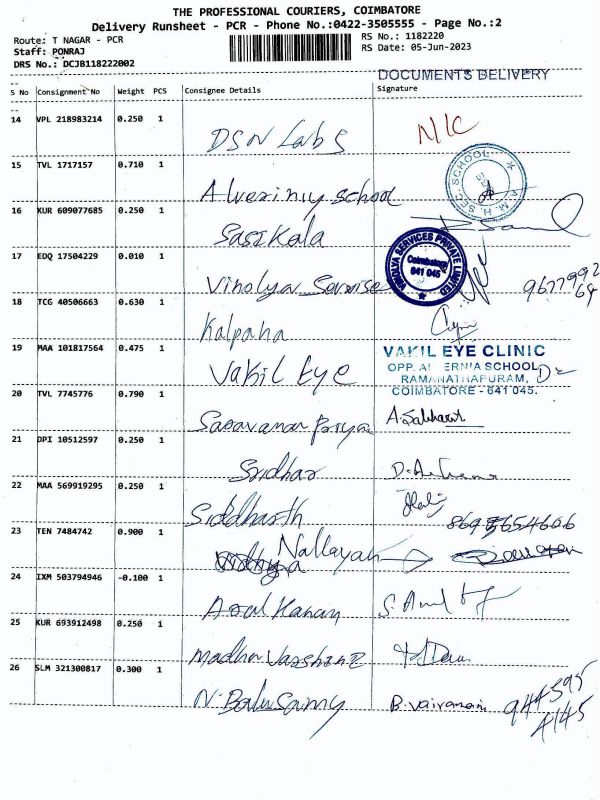 THE PROFESSIONAL COURIERS, COIMBATORE
Delivery Runsheet - PCR - Phone No.:0422-3505555 - Page No.:2
Route: T NAGAR - PCR
Staff: PONRAJ
DRS No.: DCJB118222002
RS No.: 1182220
RS Date: 05-Jun-2023
DOCUMENTS DELIVERY
S No Consignment No Weight PCS Consignee Details Signature
14 VPL 218983214 0.250 1
DSN Labs N/C
15 TVL 1717157 0.710 1
Alverniny school
SEC. SCHOOL
16 KUR 609077685 0.250 1
Sasikala
17 EDQ 17504229 0.010 1
Vinolya Servise
VINOLYA SERVICES PRIVATE LIMITED
Coimbatore
641 045
9677992
64
18 TCG 40506663 0.630 1
Kalpana
19 MAA 101817564 0.475 1
Vakil Eye
VAKIL EYE CLINIC
OPP. AL ERNIA SCHOOL,
RAMANATHAPURAM,
COIMBATORE - 641 045.
20 TVL 7745776 0.790 1
Saravanan Priya
21 DPI 10512597 0.250 1
Sridhar
22 MAA 569919295 0.250 1
Siddharth
23 TEN 7484742 0.900 1
Nallayan
24 IXM 503794946 -0.100 1
Arul Kanan
25 KUR 693912498 0.250 1
Madhu Varshini
26 SLM 321300817 0.300 1
N. Balu Samy B. Vairamani